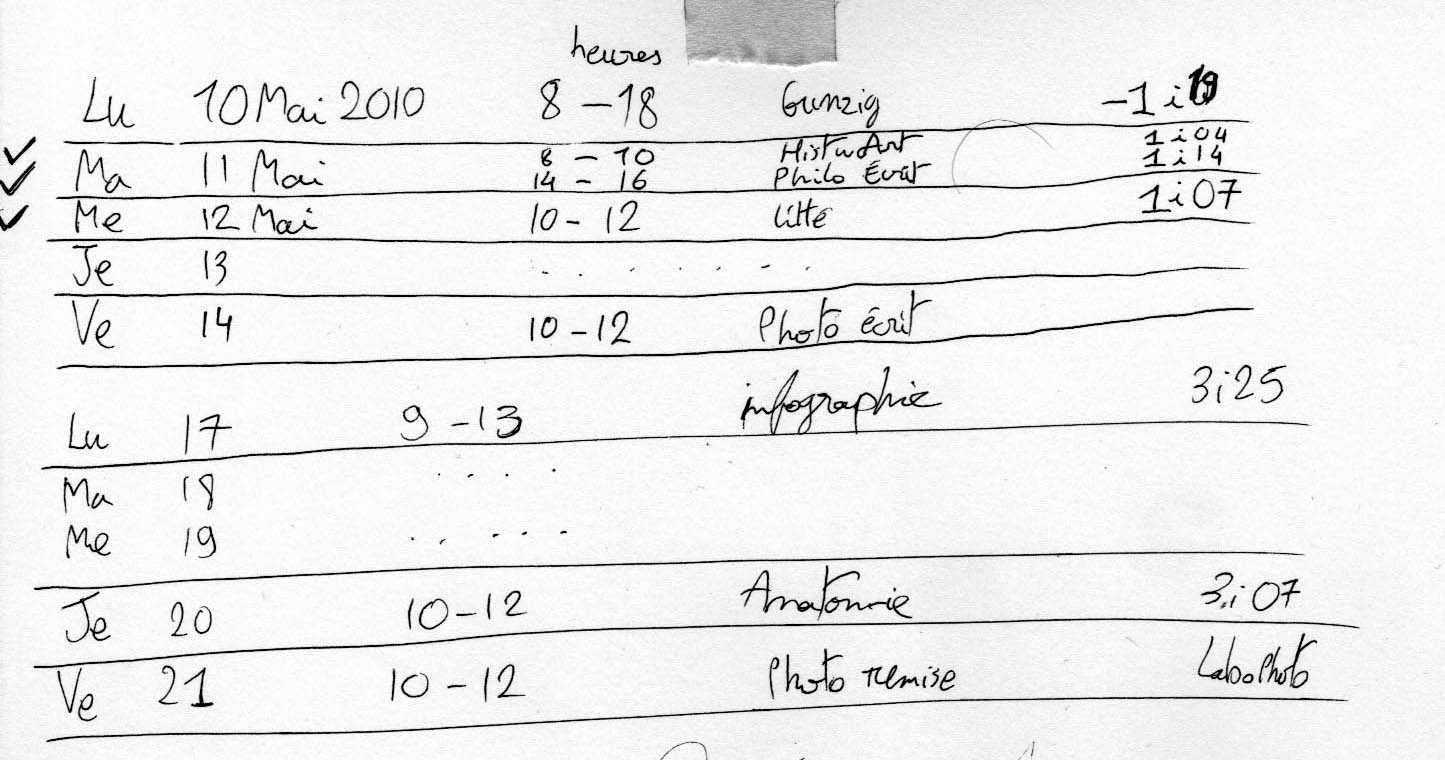 heures
Lu 10 Mai 2010 8 - 18 Gunzig -1i19
Ma 11 Mai 8 - 10 Hist Art 1i04
14 - 16 Philo Écrit 1i14
Me 12 Mai 10 - 12 Litté 1i07
Je 13 . . . . . . .
Ve 14 10 - 12 Photo écrit
Lu 17 9 - 13 infographie 3i25
Ma 18 . . . . .
Me 19 . . . . . .
Je 20 10 - 12 Anatomie 3i07
Ve 21 10 - 12 Photo remise Labo Photo